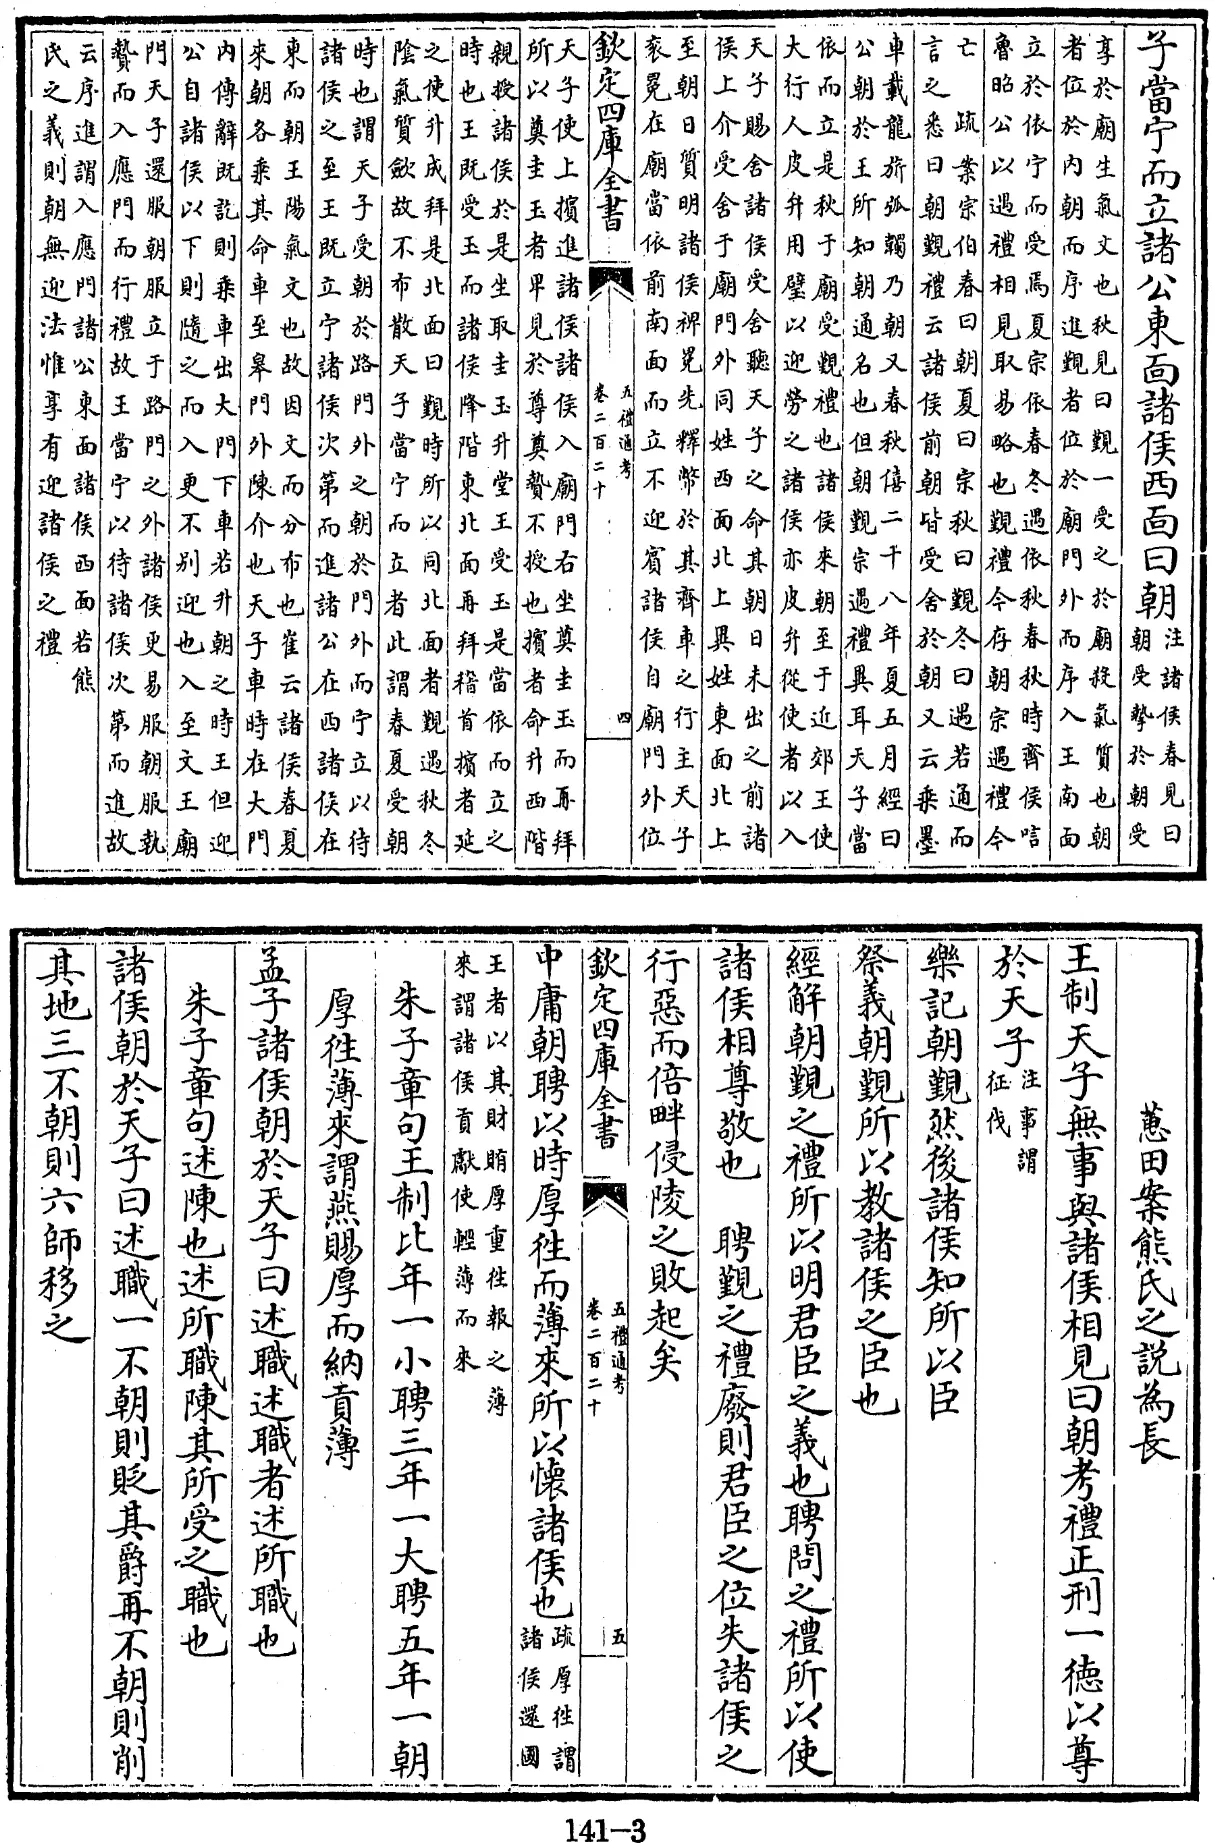 子當宁而立諸公東面諸侯西面曰朝
注諸侯春見曰
朝受摯於朝受
享於廟生氣文也秋見曰覲一受之於廟殺氣質也朝
者位於内朝而序進覲者位於廟門外而序入王南面
立於依宁而受焉夏宗依春冬遇依秋春秋時齊侯唁
魯昭公以遇禮相見取易略也覲禮今存朝宗遇禮今
亡 疏案宗伯春曰朝夏曰宗秋曰覲冬曰遇若通而
言之悉曰朝覲禮云諸侯前朝皆受舍於朝又云乘墨
車載龍旂弧韣乃朝又春秋僖二十八年夏五月經曰
公朝於王所知朝通名也但朝覲宗遇禮異耳天子當
依而立是秋于廟受覲禮也諸侯來朝至于近郊王使
大行人皮弁用璧以迎勞之諸侯亦皮弁從使者以入
天子賜舍諸侯受舍聽天子之命其朝日未出之前諸
侯上介受舍于廟門外同姓西面北上異姓東面北上
至朝日質明諸侯裨冕先釋幣於其齊車之行主天子
衮冕在廟當依前南面而立不迎賓諸侯自廟門外位
欽定四庫全書
五禮通考
卷二百二十
四
天子使上擯進諸侯諸侯入廟門右坐奠圭玉而再拜
所以奠圭玉者卑見於尊奠贄不授也擯者命升西階
親授諸侯於是坐取圭玉升堂王受玉是當依而立之
時也王既受玉而諸侯降階東北面再拜稽首擯者延
之使升成拜是北面曰覲時所以同北面者覲遇秋冬
陰氣質歛故不布散天子當宁而立者此謂春夏受朝
時也謂天子受朝於路門外之朝於門外而宁立以待
諸侯之至王既立宁諸侯次第而進諸公在西諸侯在
東而朝王陽氣文也故因文而分布也崔云諸侯春夏
來朝各乘其命車至皋門外陳介也天子車時在大門
内傳辭既訖則乘車出大門下車若升朝之時王但迎
公自諸侯以下則隨之而入更不别迎也入至文王廟
門天子還服朝服立于路門之外諸侯更易服朝服執
贄而入應門而行禮故王當宁以待諸侯次第而進故
云序進謂入應門諸公東面諸侯西面若熊
氏之義則朝無迎法惟享有迎諸侯之禮
蕙田案熊氏之説為長
王制天子無事與諸侯相見曰朝考禮正刑一徳以尊
於天子
注事謂
征伐
樂記朝覲然後諸侯知所以臣
祭義朝覲所以教諸侯之臣也
經解朝覲之禮所以明君臣之義也聘問之禮所以使
諸侯相尊敬也 聘覲之禮廢則君臣之位失諸侯之
行惡而倍畔侵陵之敗起矣
欽定四庫全書
五禮通考
卷二百二十
五
中庸朝聘以時厚徃而薄來所以懷諸侯也
疏厚徃謂
諸侯還國
王者以其財賄厚重徃報之薄
來謂諸侯貢獻使輕薄而來
朱子章句王制比年一小聘三年一大聘五年一朝
厚徃薄來謂燕賜厚而納貢薄
孟子諸侯朝於天子曰述職述職者述所職也
朱子章句述陳也述所職陳其所受之職也
諸侯朝於天子曰述職一不朝則貶其爵再不朝則削
其地三不朝則六師移之
141-3